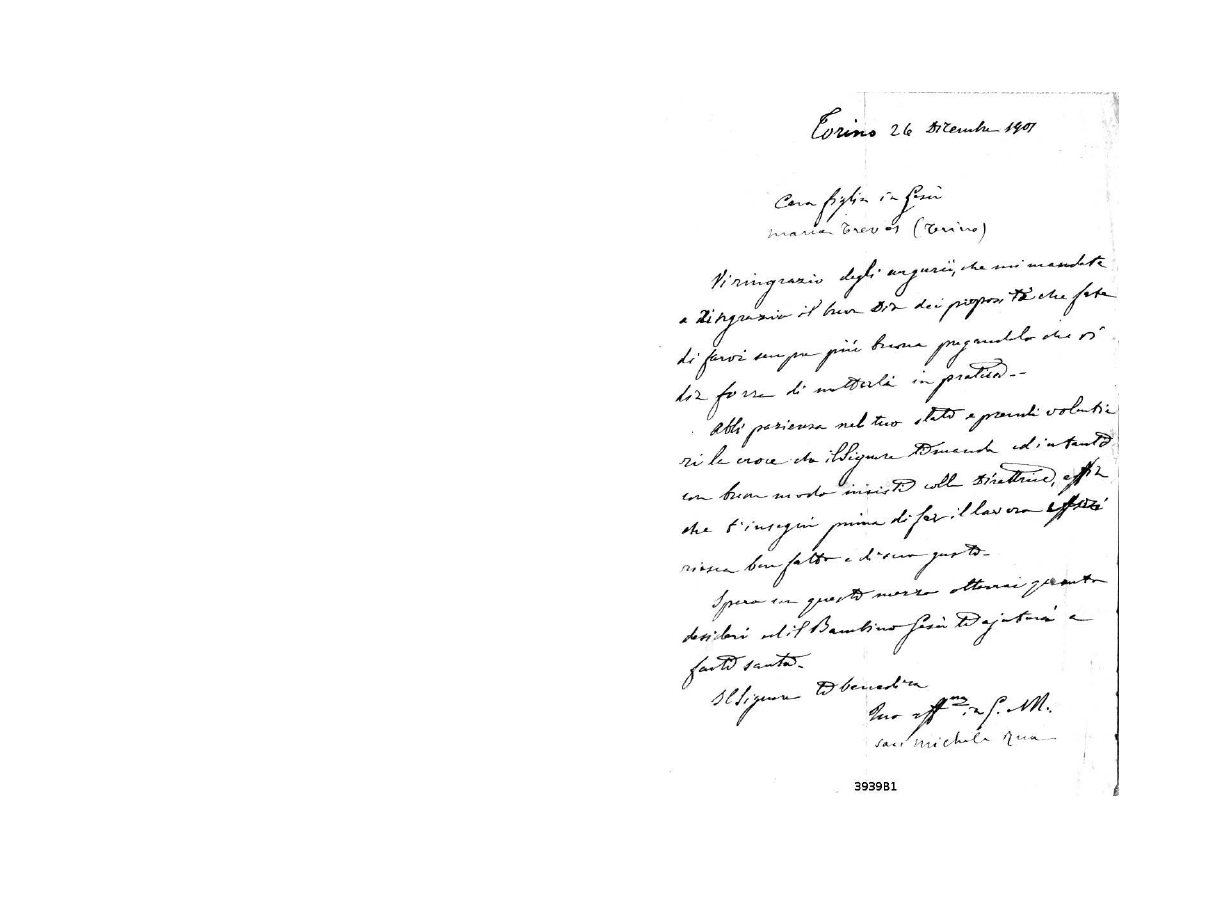 Torino 26 Dicembre 1901
Cara figlia in Gesù
Maria Treves (Torino)
Vi ringrazio degli augurii, che mi mandate
e ringrazio il buon Dio dei propositi che fate
di farvi sempre più buona pregandolo che vi
dia forza di metterli in pratica.
Abbi pazienza nel tuo stato e prendi volentie
ri la croce che il Signore ti manda ed intanto
con buon modo insisti colla Direttrice, affin
che t'insegni prima di far il lavoro
riesca ben fatto e di suo gusto.
Spero con questo mezzo otterrai quanto
desideri ed il Bambino Gesù ti ajuterà a
farti santa.
Il Signore ti benedica
Tuo aff.mo in G. M.
Sac. Michele Rua
3939B1